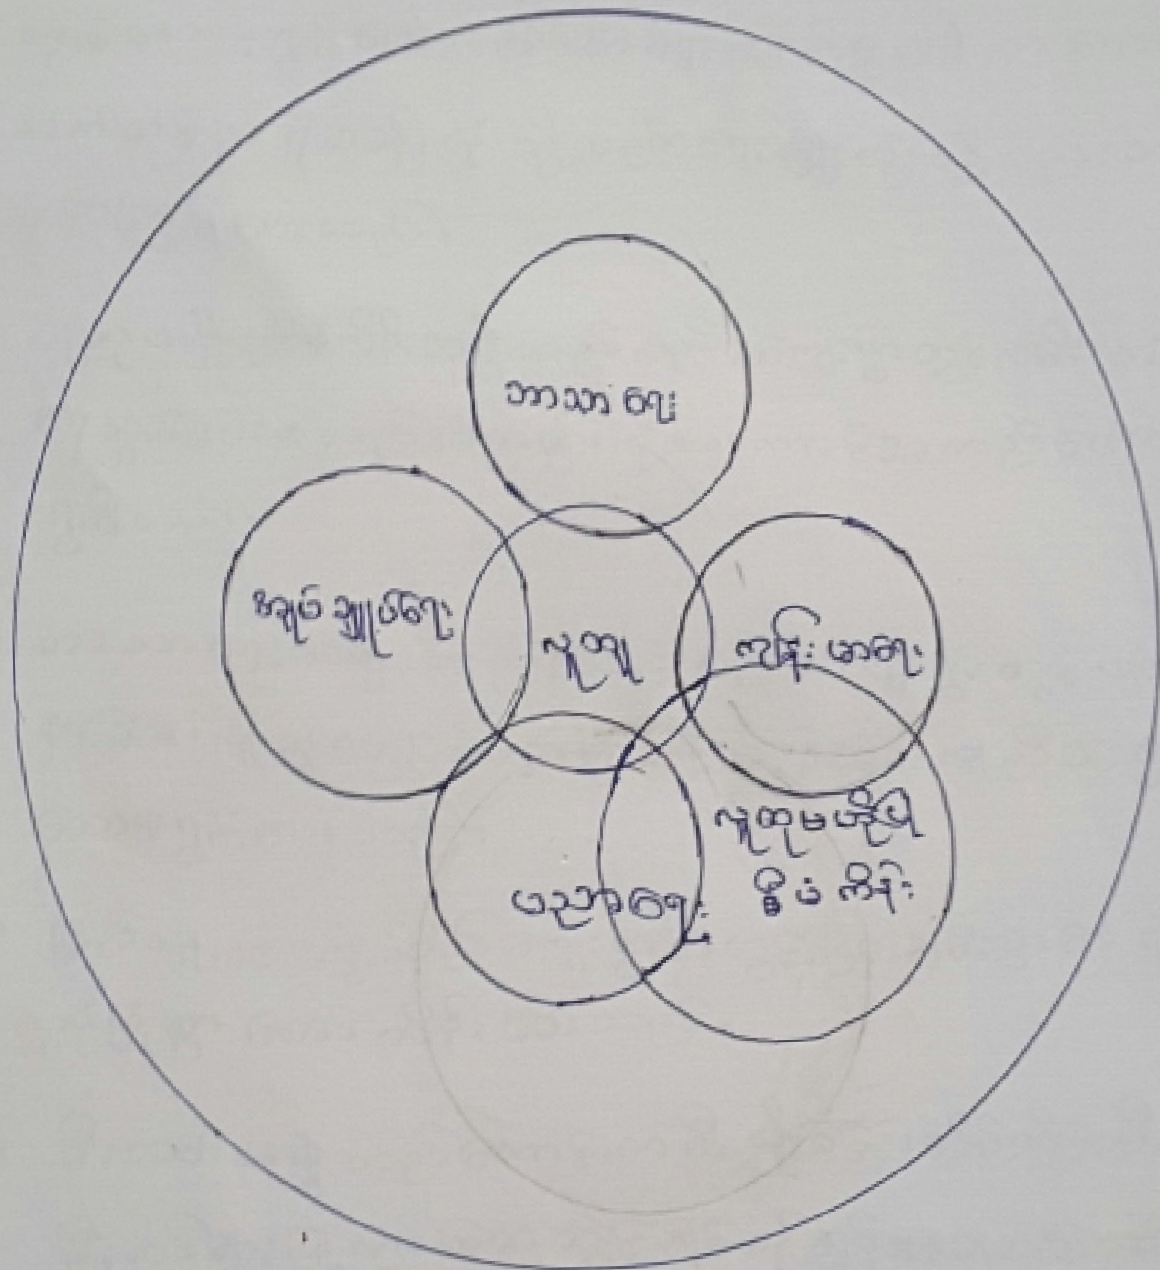 ဘာသာရေး
အုပ်ချုပ်ရေး
လူထု
ကျန်းမာရေး
လူထုမဟိုပြု
စီမံကိန်း
ပညာရေး